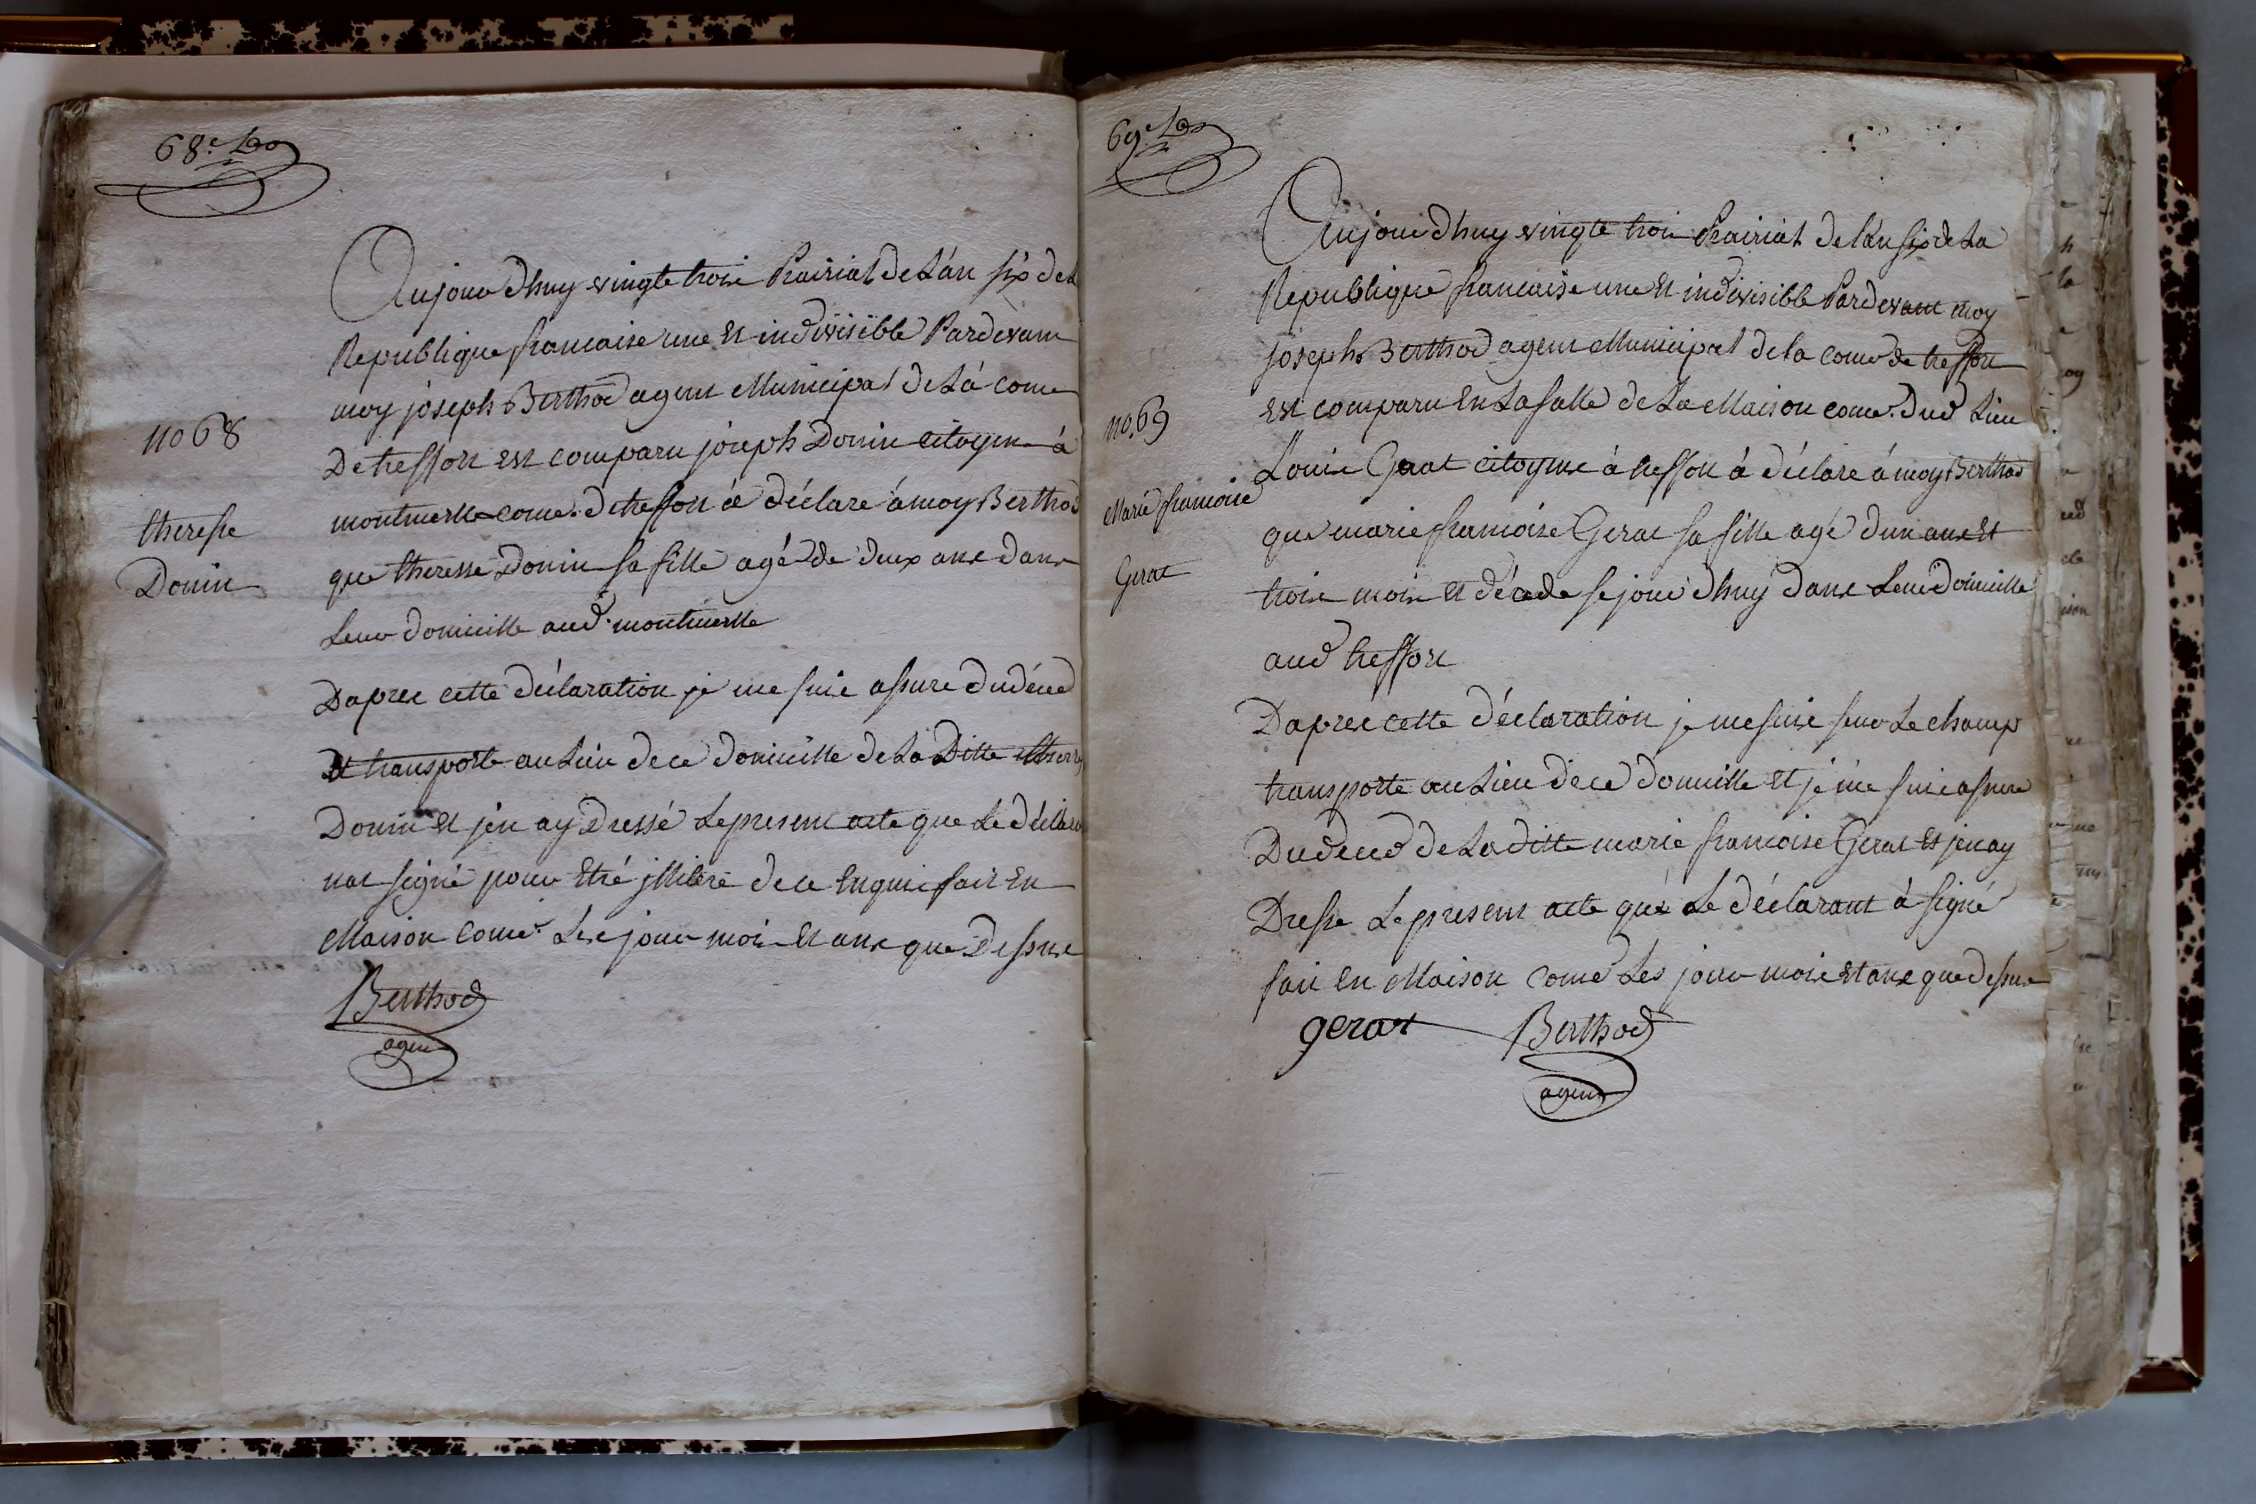 68.e
no 68
theresse
Donin
Aujourdhuy vingte trois Prairial de L'an six de La
Republique francaise une Et indivisible Pardevant
moy joseph Berthod agent Municipal de La come
De tresfort est comparu joseph Donin citoyen à
montmerle come. de treffort à déclaré à moy Berthod
que theresse Donin sa fille agé de deux ans dans
Leur domicille aud. montmerle
Daprex cette déclaration je me suis assure dudéced
Et transporte au Lieu de ce domicille de La Ditte
Donin et jen ay Dressé Le present acte que Le
nat signé pour Etré jlliteré de ce Enquis fait En
Maison come. Les jour mois Et ans que Dessus
Berthod
agent
69.e
no. 69
Marie francoise
Gerat
Aujourdhuy vingte trois Prairial de l'an six de La
Republique francaise une Et indivisible Pardevant moy
joseph Berthod agent Municipal de la come de treffort
Est comparu En La salle de La Maison come. Dud Lieu
Louis Gerat citoyen à treffort à déclaré à moy Berthod
que marie francoise Gerat sa fille agé dun ans Et
trois mois et décede sejourdhuy dans Leur Domicille
aud treffort
Daprex cette déclaration je me suis sur Le champ
transporte au Lieu de ce domicille Et je me suis assure
Du deced de La ditte marie francoise Gerat Et jen ay
Dresse Le present acte que Le déclarant à signé
fait En Maison Come Les jour mois Et ans que dessus
gerat Berthod
agent